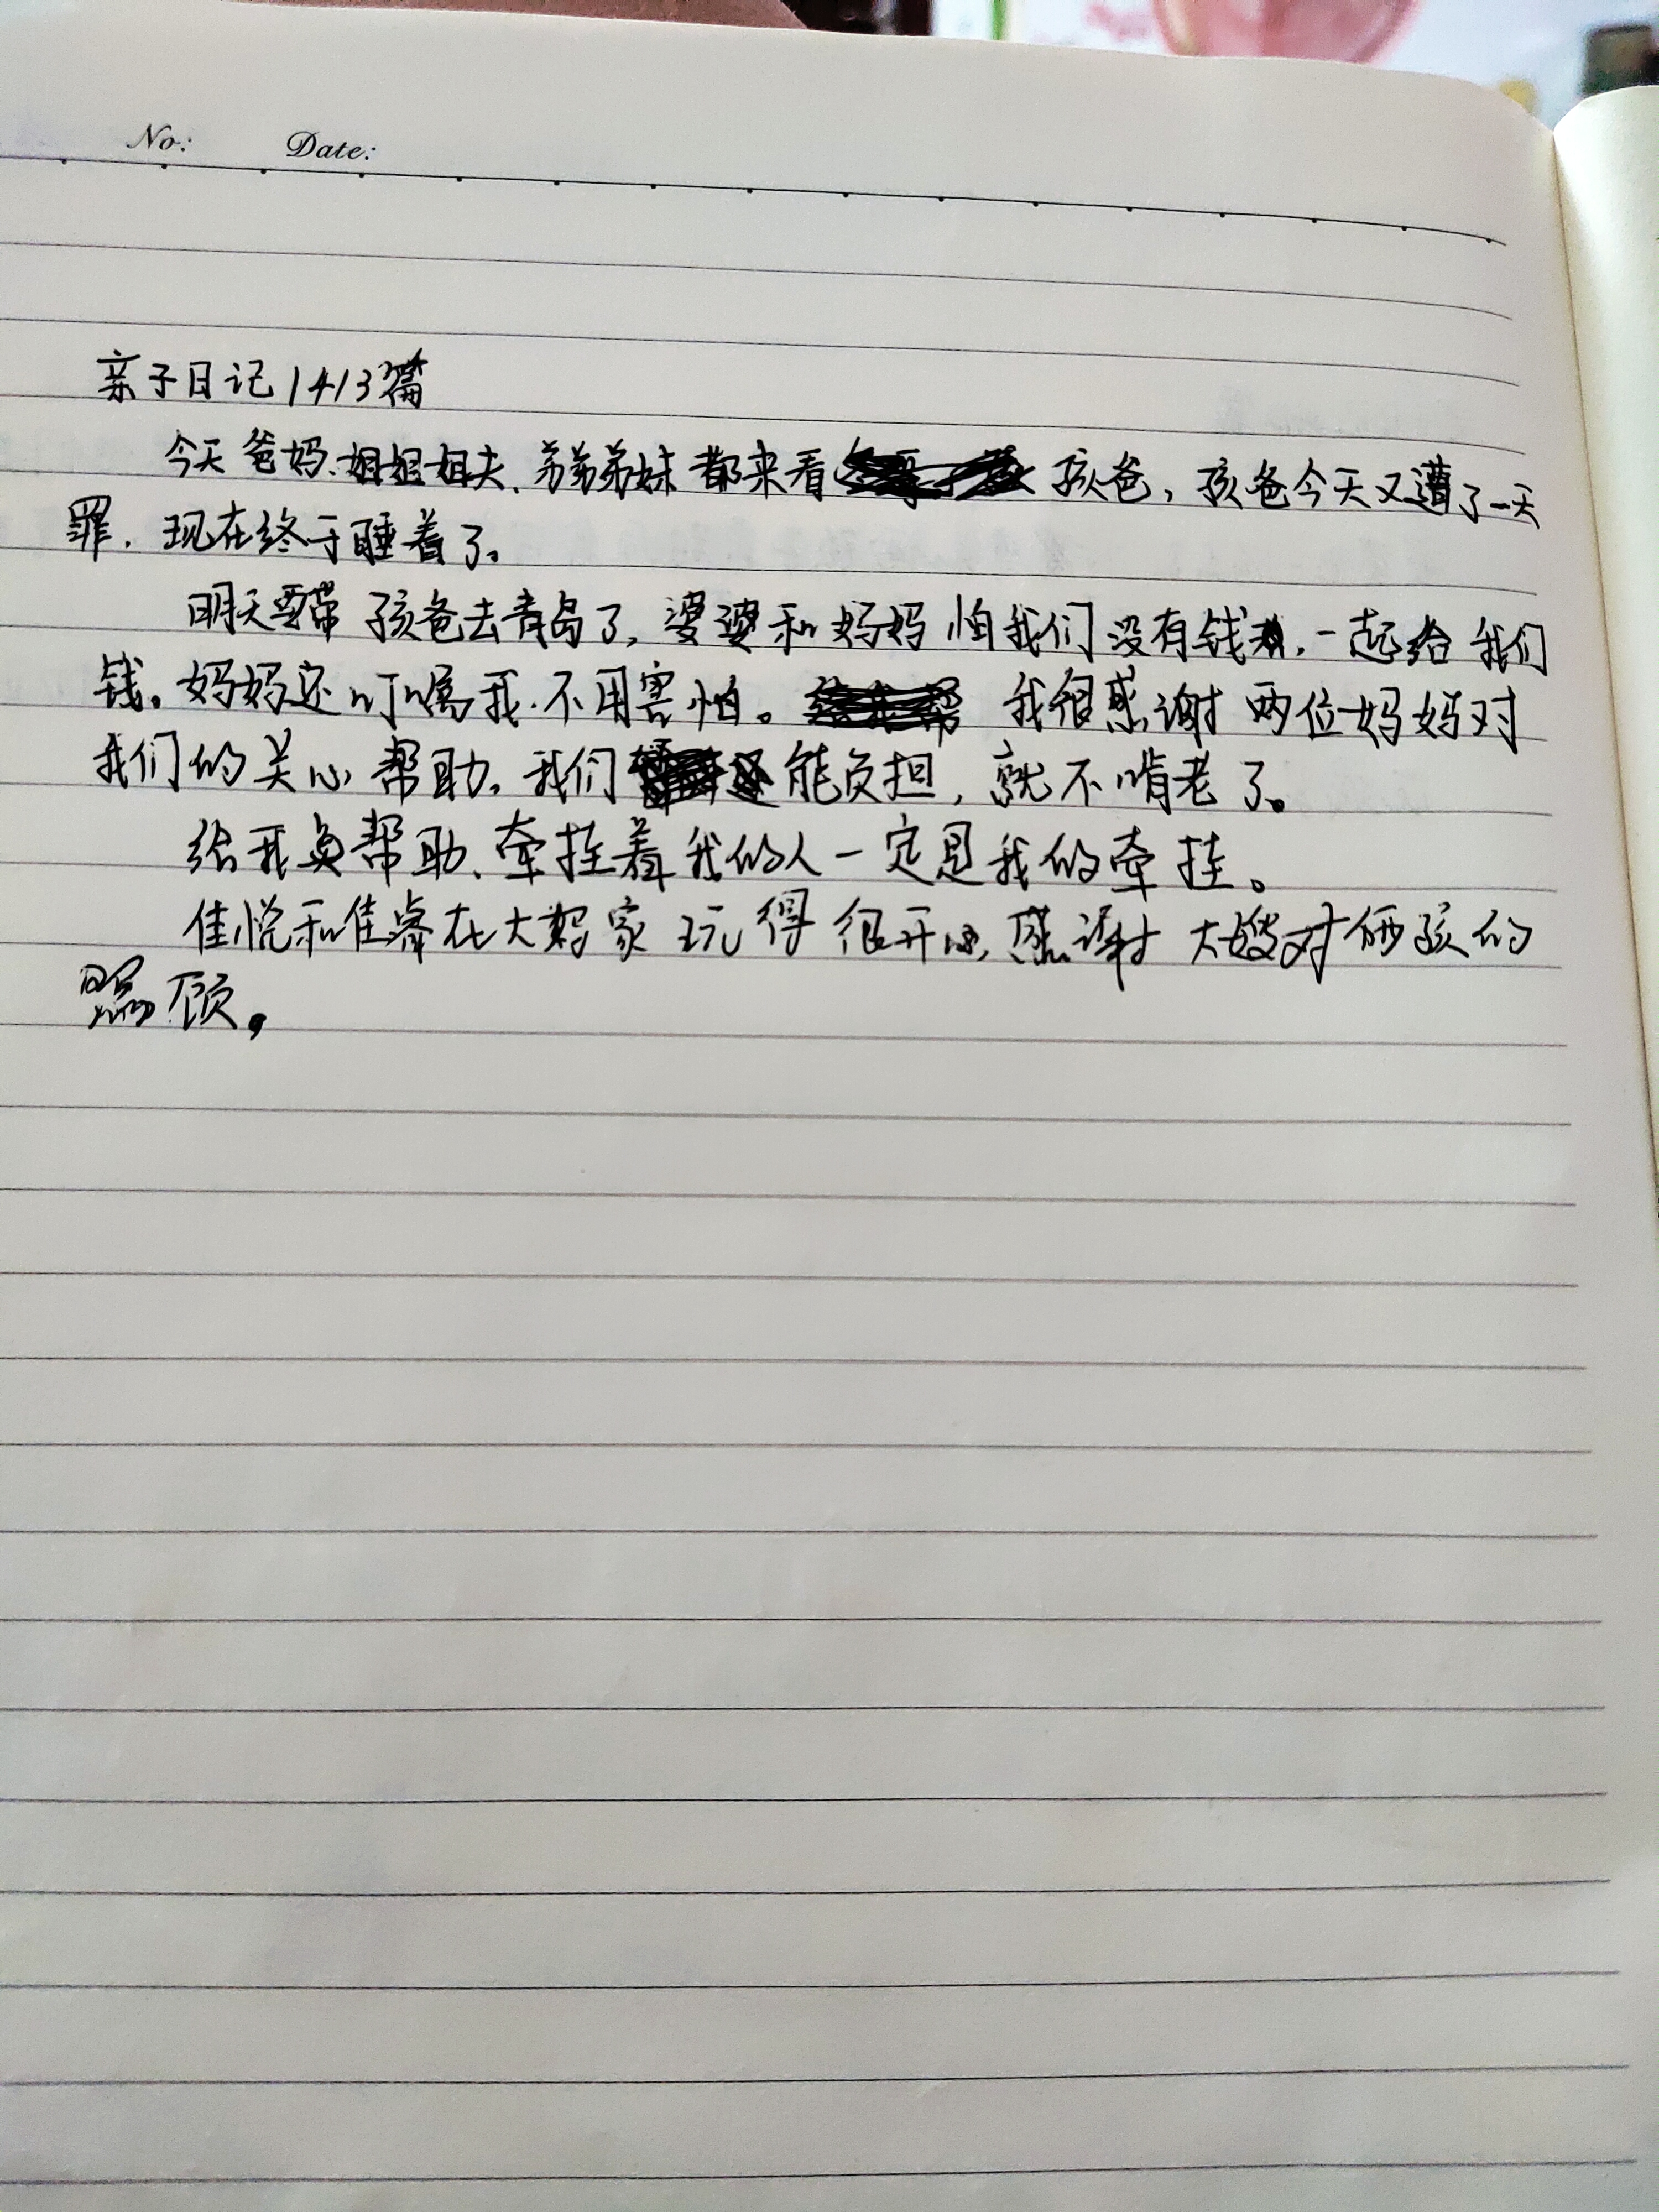 No: Date:
亲子日记1413篇
今天爸妈、姐姐姐夫、弟弟弟妹都来看孩爸，孩爸今天又遭了一天
罪，现在终于睡着了。
明天要带孩爸去青岛了，婆婆和妈妈怕我们没有钱，一起给我们
钱。妈妈还叮嘱我，不用害怕。我很感谢两位妈妈对
我们的关心帮助。我们还能负担，就不啃老了。
给我帮助、牵挂着我的人一定是我的牵挂。
佳悦和佳睿在大嫂家玩得很开心，感谢大嫂对俩孩的
照顾。